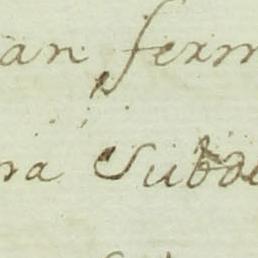 an ferm
na Subde